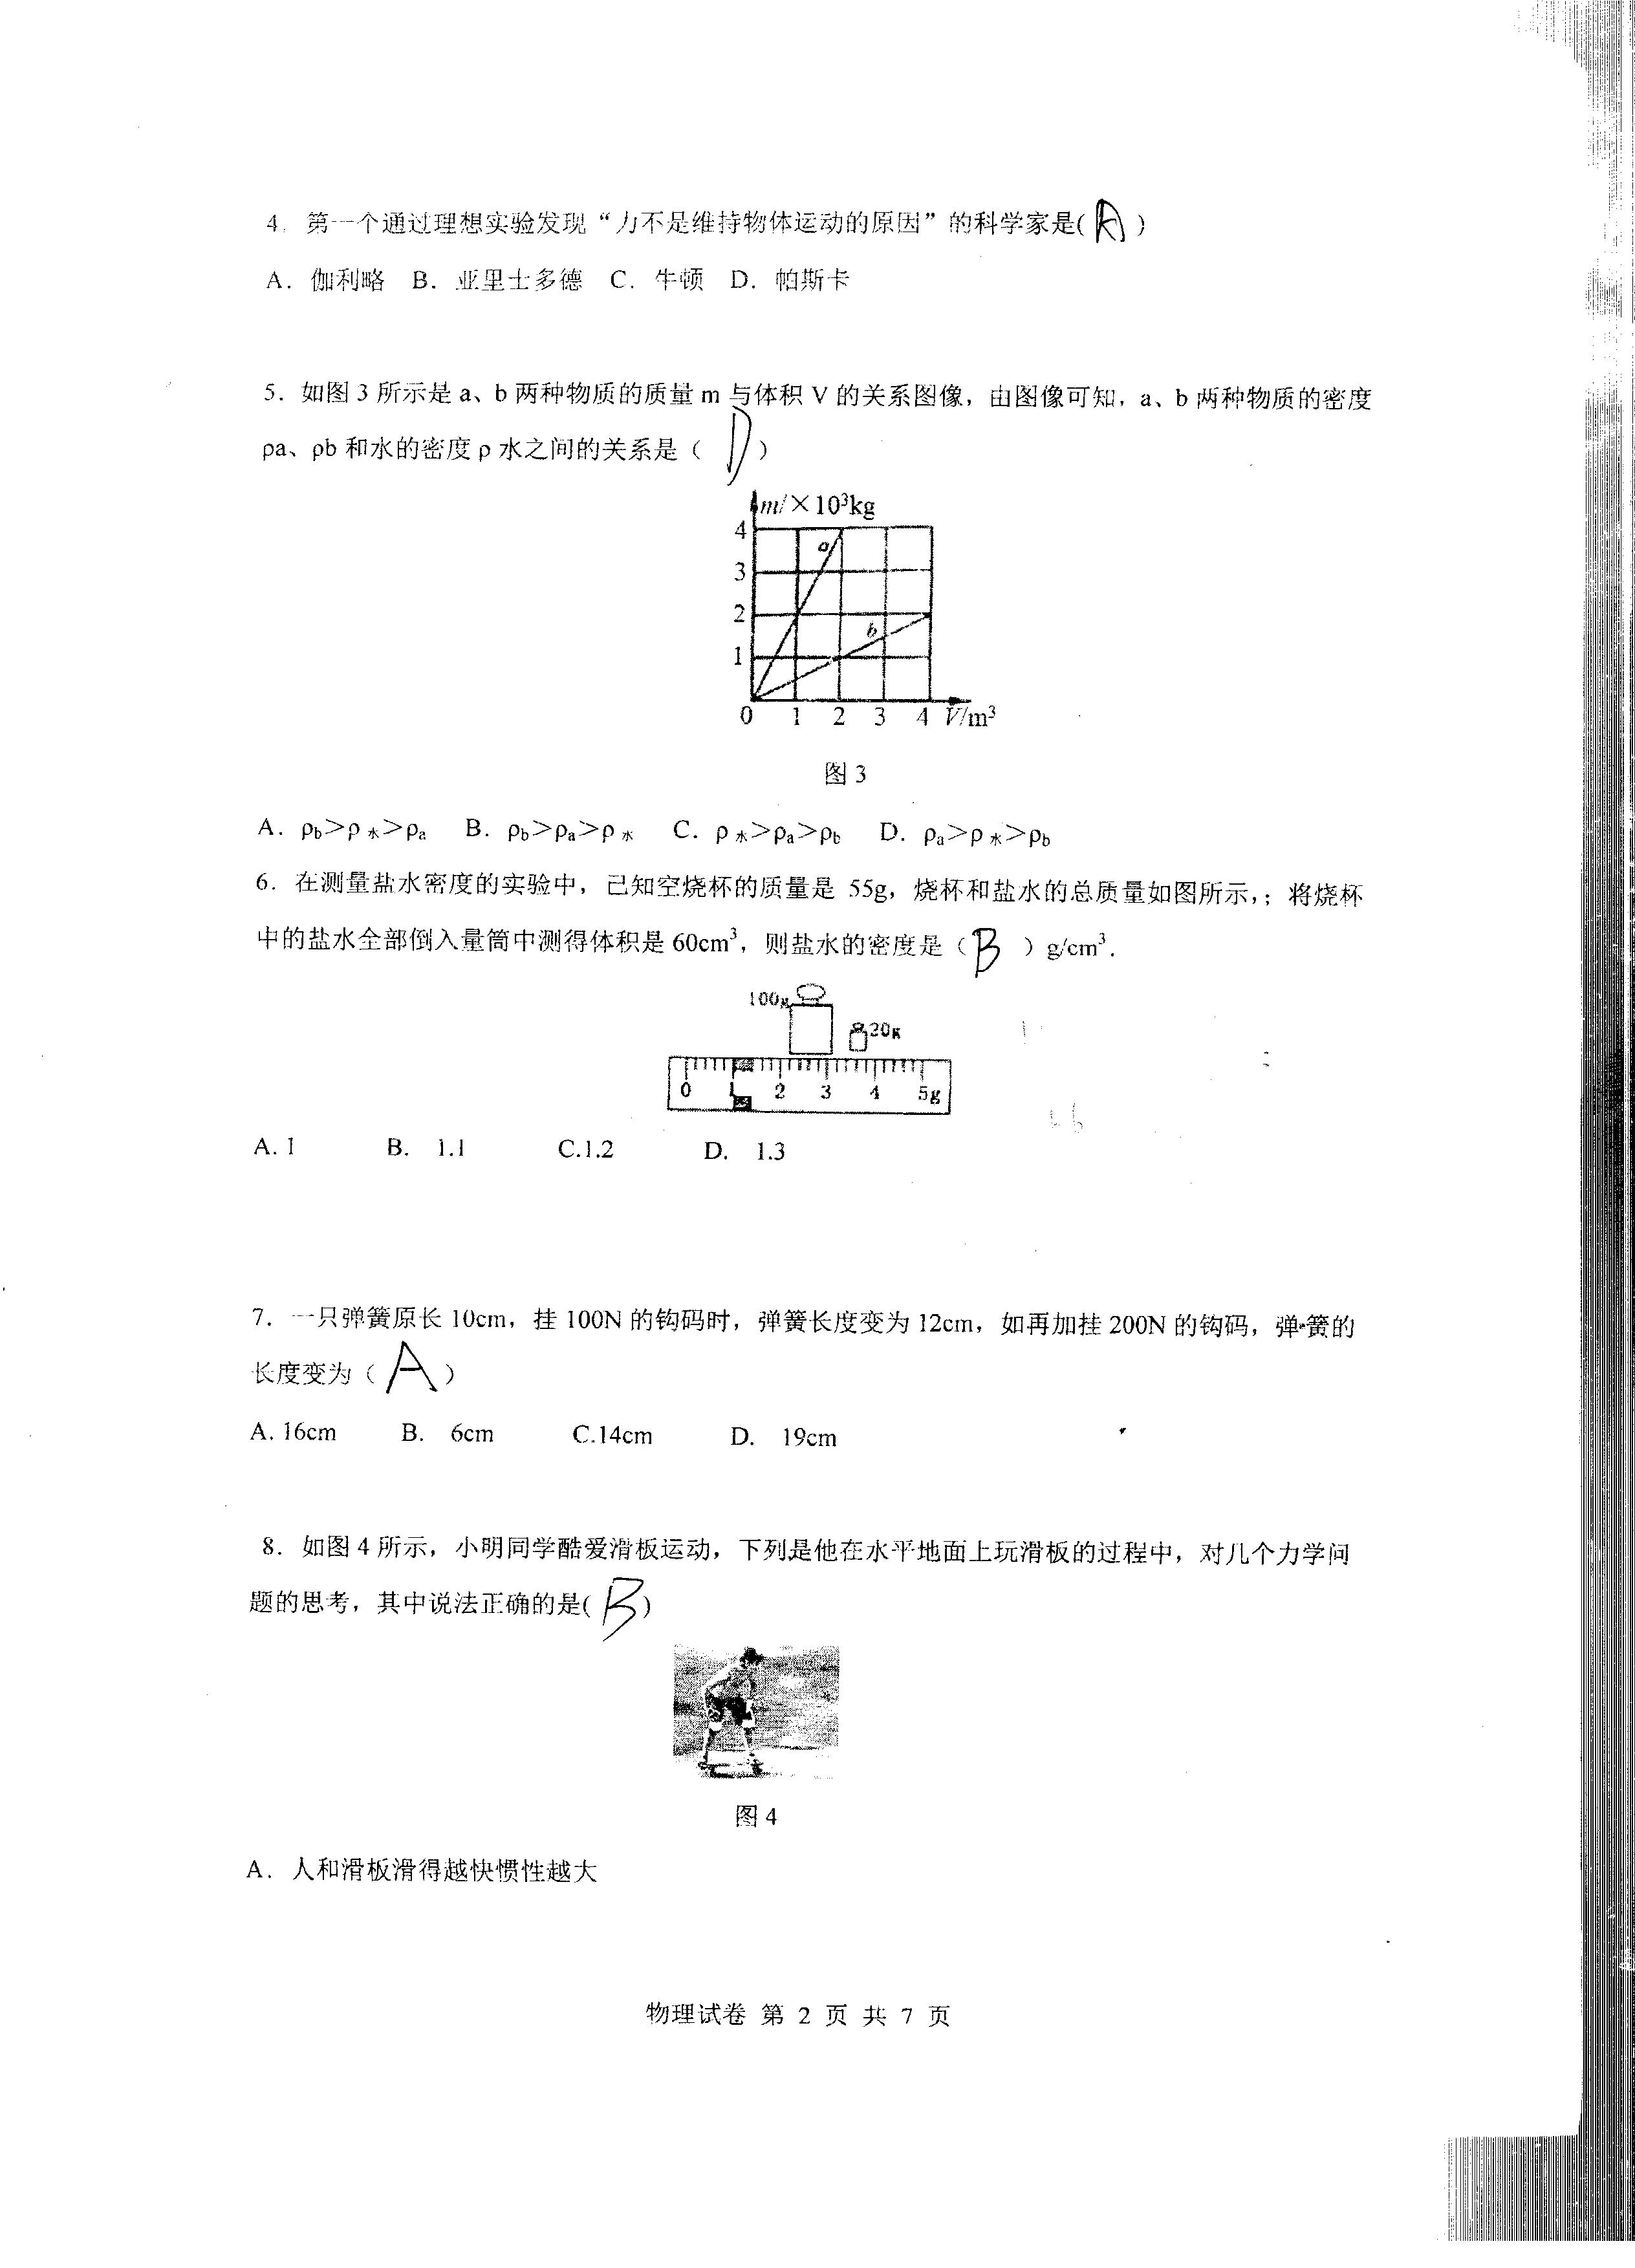 4. 第一个通过理想实验发现“力不是维持物体运动的原因”的科学家是( A )
A. 伽利略 B. 亚里士多德 C. 牛顿 D. 帕斯卡
5. 如图 3 所示是 a、b 两种物质的质量 m 与体积 V 的关系图像，由图像可知，a、b 两种物质的密度
ρa、ρb 和水的密度 ρ 水之间的关系是（ D ）
m/×10³kg
4
3
2
1
a
b
0 1 2 3 4 V/m³
图 3
A. ρb＞ρ水＞ρa B. ρb＞ρa＞ρ水 C. ρ水＞ρa＞ρb D. ρa＞ρ水＞ρb
6. 在测量盐水密度的实验中，已知空烧杯的质量是 55g，烧杯和盐水的总质量如图所示,；将烧杯
中的盐水全部倒入量筒中测得体积是 60cm³，则盐水的密度是（ B ）g/cm³.
100g
20g
0 1 2 3 4 5g
A. 1 B. 1.1 C.1.2 D. 1.3
7. 一只弹簧原长 10cm，挂 100N 的钩码时，弹簧长度变为 12cm，如再加挂 200N 的钩码，弹簧的
长度变为（ A ）
A. 16cm B. 6cm C.14cm D. 19cm
8. 如图 4 所示，小明同学酷爱滑板运动，下列是他在水平地面上玩滑板的过程中，对几个力学问
题的思考，其中说法正确的是( B )
图 4
A. 人和滑板滑得越快惯性越大
物理试卷 第 2 页 共 7 页